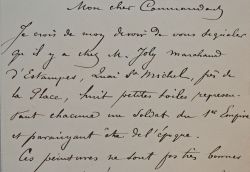 Mon cher Commandant
Je crois de mon devoir de vous signaler
qu'il y a chez M. Joly marchand
d'Estampes, Quai St Michel, près de
la Place, huit petites toiles représen-
tant chacune un soldat du 1er Empire
et paraissant être de l'époque.
Ces peintures ne sont pas très bonnes